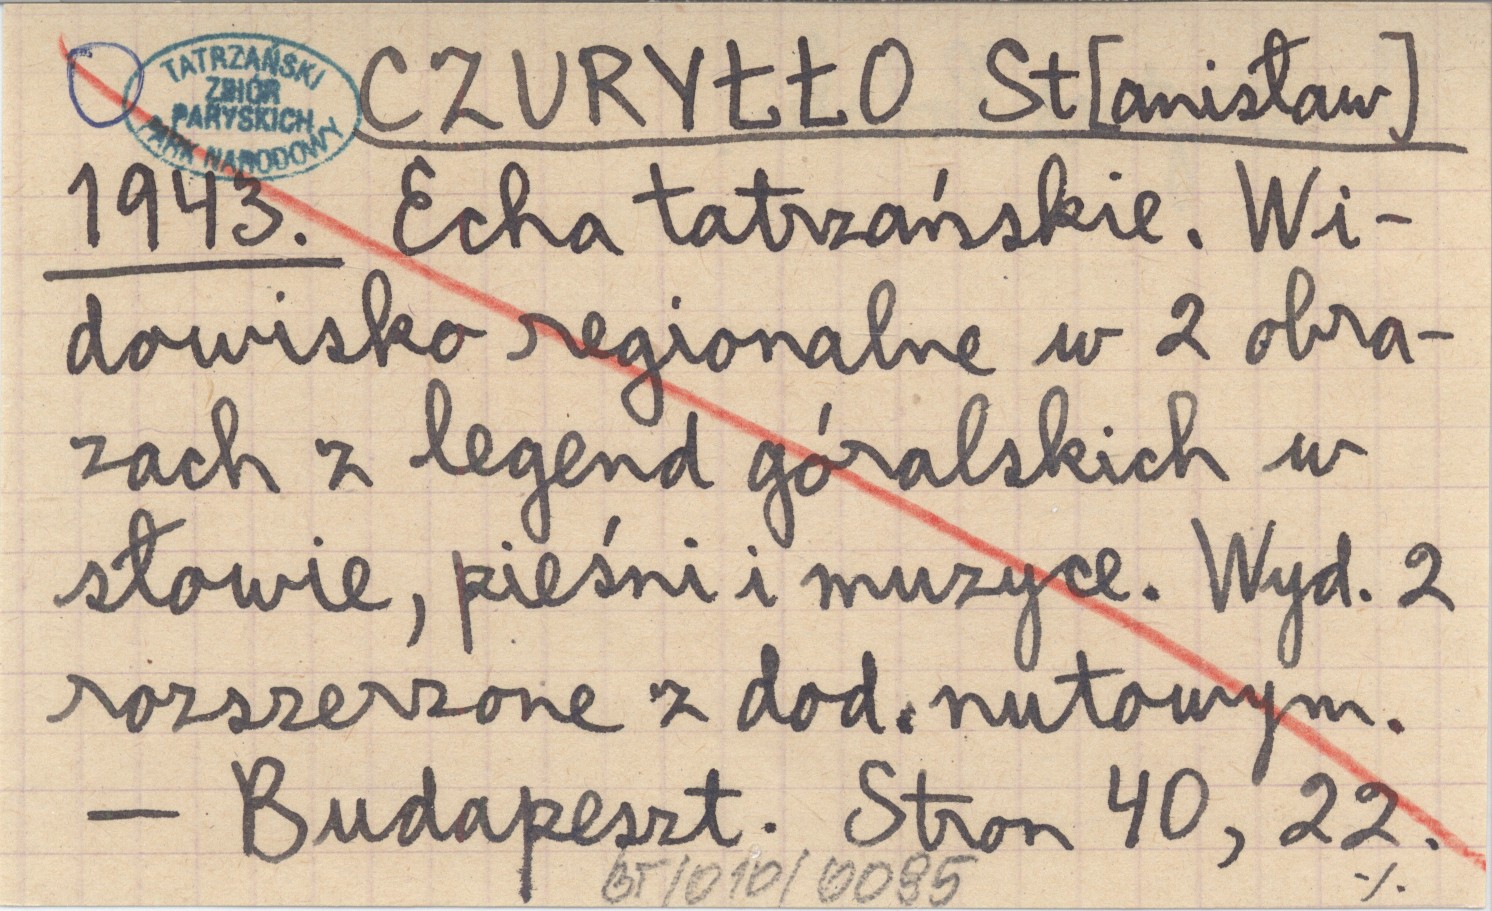 TATRZAŃSKI
ZBIÓR
PARYSKICH
PARK NARODOWY
CZURYŁŁO St[anisław]
1943. Echa tatrzańskie. Wi-
dowisko regionalne w 2 obra-
zach z legend góralskich w
słowie, pieśni i muzyce. Wyd. 2
rozszerzone z dod. nutowym.
— Budapeszt. Stron 40, 22.
bT/010/0085
./.